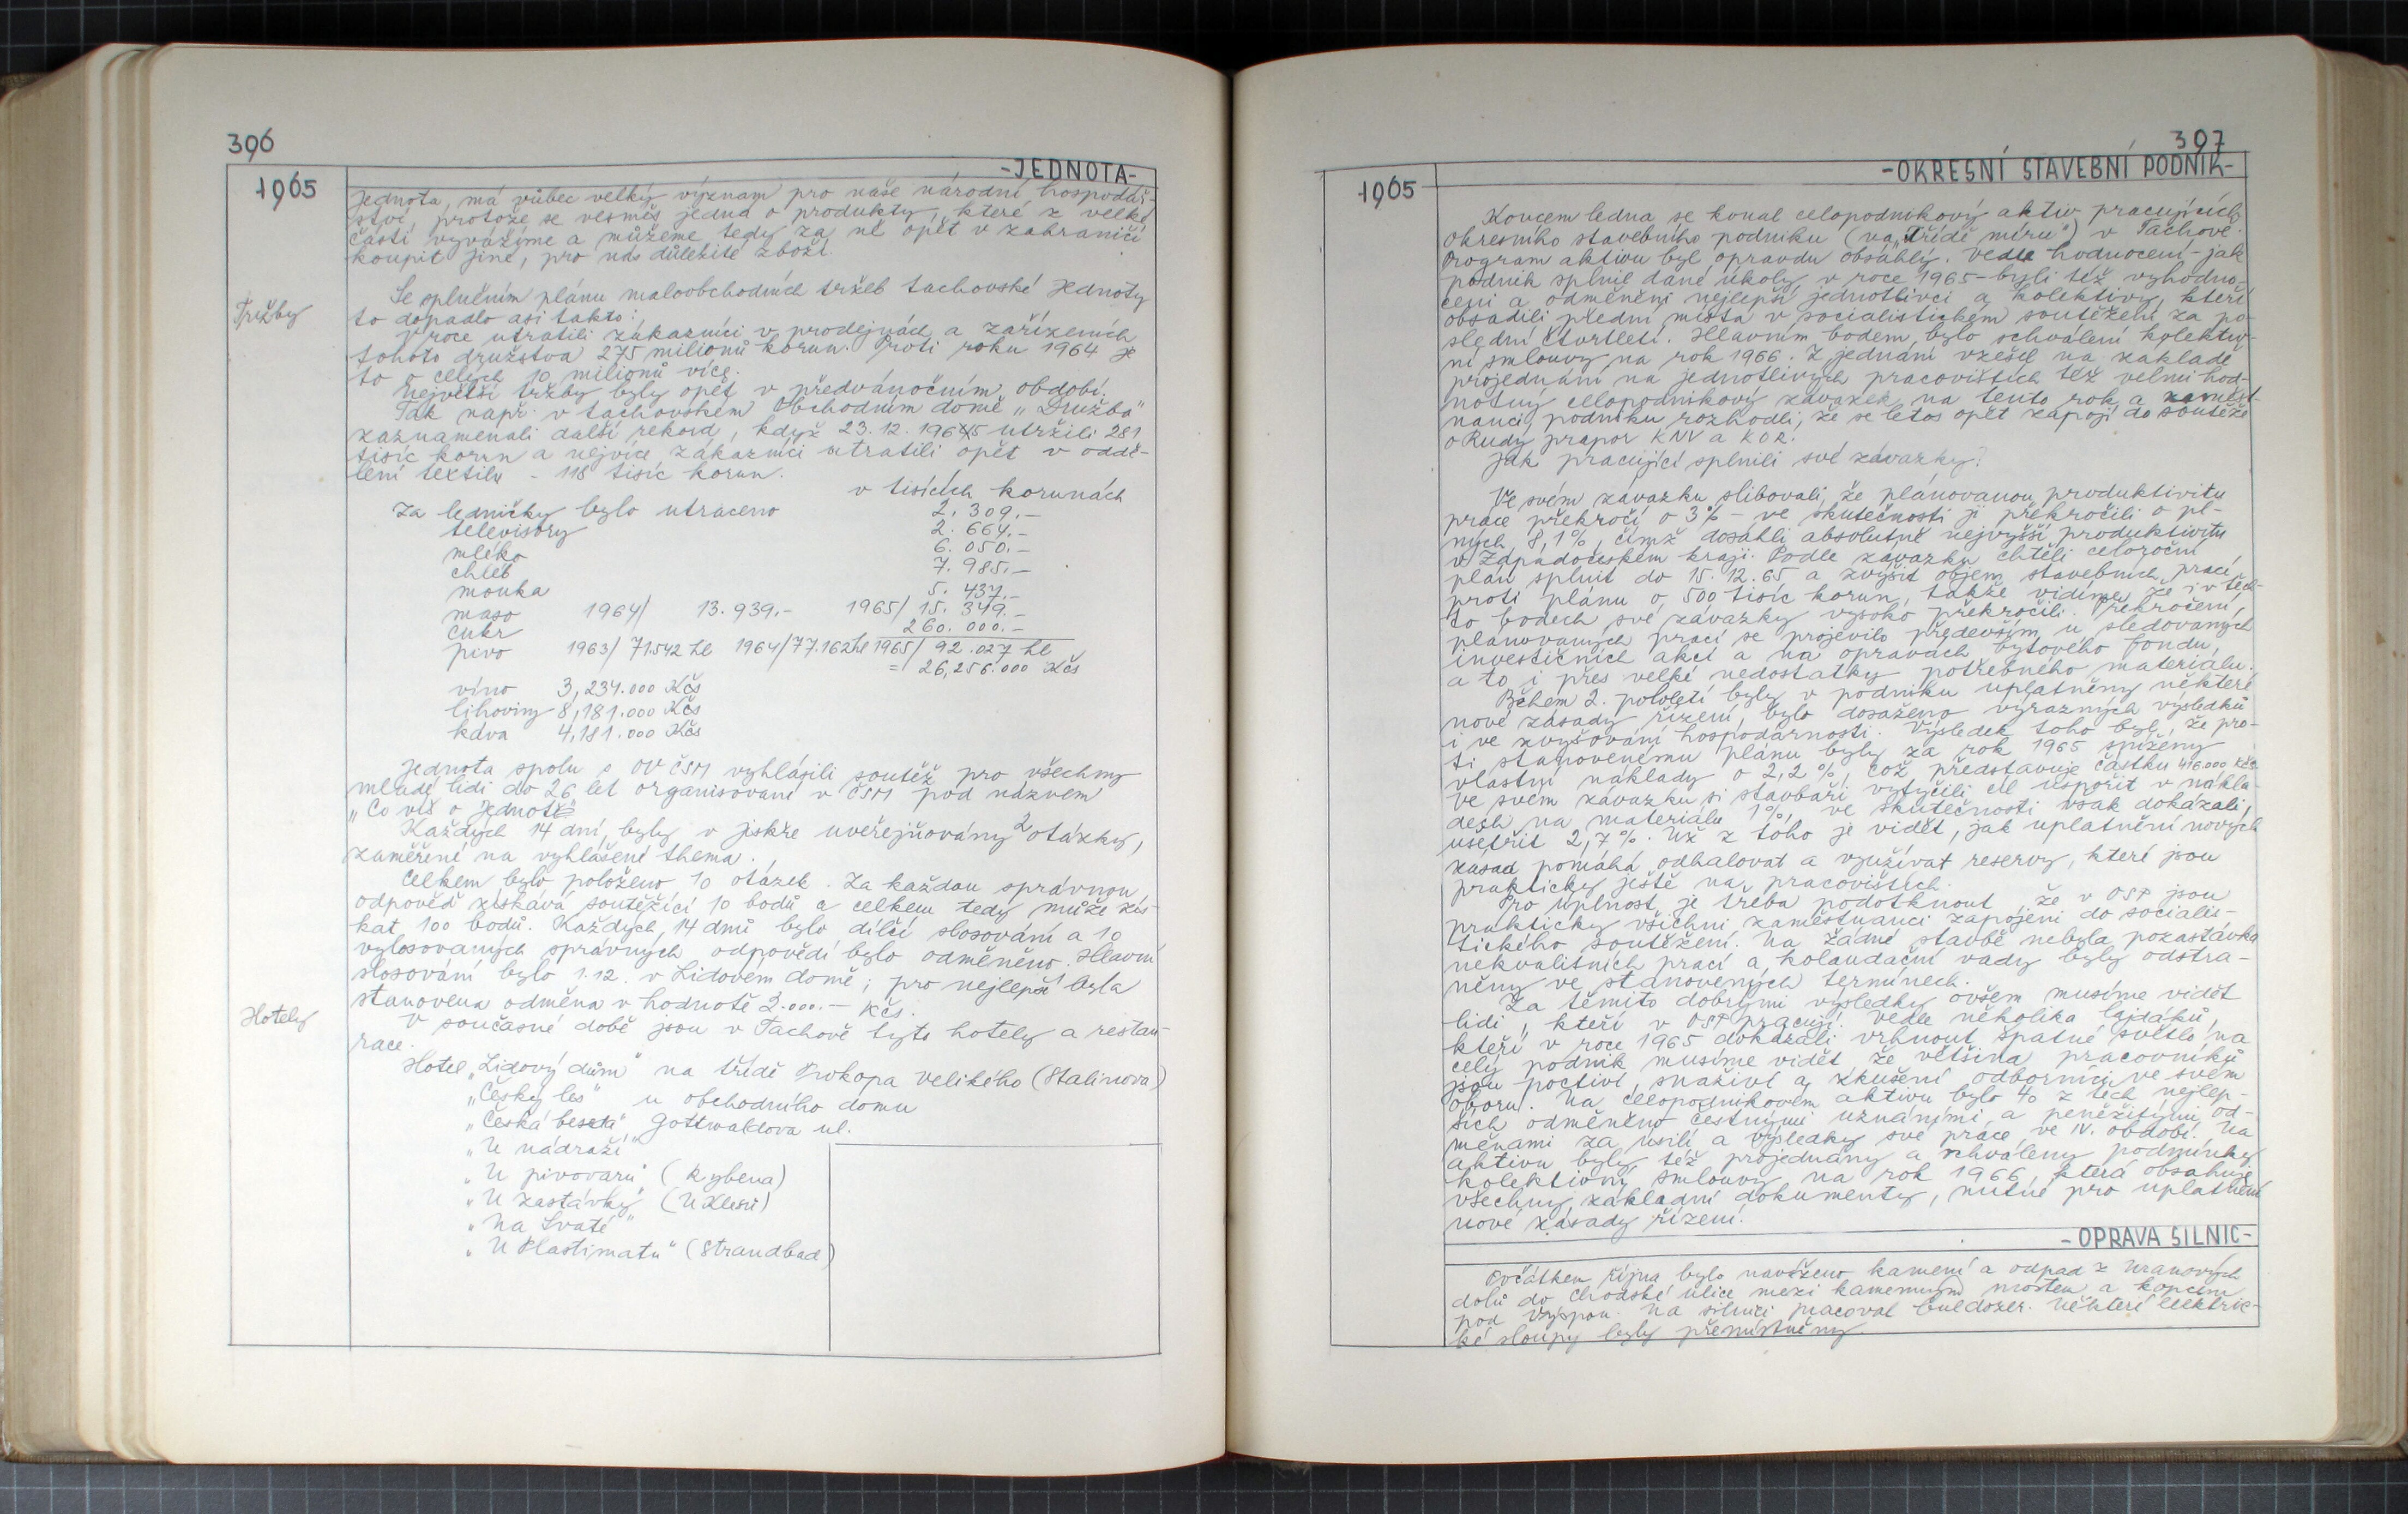 396
-JEDNOTA-
1965
Jednota, má vůbec velký význam pro naše národní hospodář-
ství, protože se vesměs jedná o produkty, které z velké
části vyvážíme a můžeme tedy za ně opět v zahraničí
koupit jiné, pro nás důležité zboží.
Tržby
Se splněním plánu maloobchodních tržeb tachovské Jednoty
to dopadlo asi takto:
V roce utratili zákazníci v prodejnách a zařízeních
tohoto družstva 275 milionů korun. Proti roku 1964 je
to o celých 10 milionů více.
Největší tržby byly opět v předvánočním období.
Tak např. v tachovském Obchodním domě „Družba"
zaznamenali další rekord, když 23.12.1965 utržili 281
tisíc korun a nejvíce zákazníci utratili opět v oddě-
lení textilu - 118 tisíc korun.
v tisících korunách
Za ledničky bylo utraceno 2.309.-
televisory 2.664.-
mléko 6.050.-
chléb 7.985.-
mouka 5.437.-
maso 1964/ 13.939.- 1965/ 15.349.-
cukr 260.000.-
pivo 1963/ 71.542 hl 1964/77.162hl 1965/ 92.027 hl
= 26,256.000 Kčs
víno 3,234.000 Kčs
lihoviny 8,181.000 Kčs
káva 4,181.000 Kčs
Jednota spolu s OV ČSM vyhlásili soutěž pro všechny
mladé lidi do 26 let organisované v ČSM pod názvem
„Co víš o Jednotě"
Každých 14 dní, byly v Jiskře uveřejňovány 2 otázky,
zaměřené na vyhlášené thema.
Celkem bylo položeno 10 otázek. Za každou správnou
odpověď získává soutěžící 10 bodů a celkem tedy může zís-
kat 100 bodů. Každých 14 dnů bylo dílčí slosování a 10
vylosovaných správných odpovědí bylo odměněno. Hlavní
slosování bylo 1.12. v Lidovém domě; pro nejlepší byla
stanovena odměna v hodnotě 2.000.- Kčs.
Hotely
V současné době jsou v Tachově tyto hotely a restau-
race.
Hotel „Lidový dům" na třídě Prokopa Velikého (Stalinova)
„Český les" u obchodního domu
„Česká beseda" Gottwaldova ul.
„U nádraží"
„U pivovaru" (Kybena)
„U zastávky" (U Klesů)
„Na Svaté"
„U Plastimatu" (Strandbad)
397
-OKRESNÍ STAVEBNÍ PODNIK-
1965
Koncem ledna se konal celopodnikový aktiv pracujících
Okresního stavebního podniku (na „Třídě míru") v Tachově.
Program aktivu byl opravdu obsáhlý. Vedle hodnocení - jak
podnik splnil dané úkoly v roce 1965 - byli též vyhodno-
ceni a odměněni nejlepší jednotlivci a kolektivy, kteří
obsadili přední místa v socialistickém soutěžení za po-
slední čtvrtletí. Hlavním bodem bylo schválení kolektiv-
ní smlouvy na rok 1966. Z jednání vzešel na základě
projednání na jednotlivých pracovištích též velmi hod-
notný celopodnikový závazek na tento rok a zaměst-
nanci podniku rozhodli, že se letos opět zapojí do soutěže
o Rudý prapor KNV a KOR.
Jak pracující splnili své závazky?
Ve svém závazku slibovali, že plánovanou produktivitu
práce překročí o 3% - ve skutečnosti ji překročili o pl-
ných 8,1%, čímž dosáhli absolutně nejvyšší produktivitu
v Západočeském kraji. Podle závazku chtěli celoroční
plán splnit do 15.12.65 a zvýšit objem stavebních prací
proti plánu o 500 tisíc korun, takže vidíme, že i v těch-
to bodech své závazky vysoko překročili. Překročení
plánovaných prací se projevilo především u sledovaných
investičních akcí a na opravách bytového fondu,
a to i přes velké nedostatky potřebného materiálu.
Během 2. pololetí byly v podniku uplatněny některé
nové zásady řízení, bylo dosaženo výrazných výsledků
i ve zvyšování hospodárnosti. Výsledek toho byl, že pro-
ti stanovenému plánu byly za rok 1965 sníženy
vlastní náklady o 2,2%, což představuje částku 416.000 Kčs.
Ve svém závazku si stavbaři vytyčili cíl uspořit v nákla-
dech na materiálu 1%, ve skutečnosti však dokázali
ušetřit 2,7%. Už z toho je vidět, jak uplatnění nových
zásad pomáhá odhalovat a využívat reservy, které jsou
prakticky ještě na pracovištích.
Pro úplnost je třeba podotknout, že v OSP jsou
prakticky všichni zaměstnanci zapojeni do socialis-
tického soutěžení. Na žádné stavbě nebyla pozastávka
nekvalitních prací a kolaudační vady byly odstra-
něny ve stanovených termínech.
Za těmito dobrými výsledky ovšem musíme vidět
lidi, kteří v OSP pracují. Vedle několika lajdáků,
kteří v roce 1965 dokázali vrhnout špatné světlo na
celý podnik musíme vidět, že většina pracovníků
jsou poctiví, snaživí a zkušení odborníci ve svém
oboru. Na celopodnikovém aktivu bylo 40 z těch nejlep-
ších odměněno čestnými uznáními a peněžitými od-
měnami za úsilí a výsledky své práce ve IV. období. Na
aktivu byly též projednány a schváleny podmínky
kolektivní smlouvy na rok 1966, která obsahuje
všechny základní dokumenty, nutné pro uplatnění
nové zásady řízení.
-OPRAVA SILNIC-
Počátkem října bylo navoženo kamení a odpad z Uranových
dolů do Chodské ulice mezi kamenným mostem a kopcem
pod Výspou. Na silnici pracoval buldozer. Některé elektric-
ké sloupy byly přemístěny.